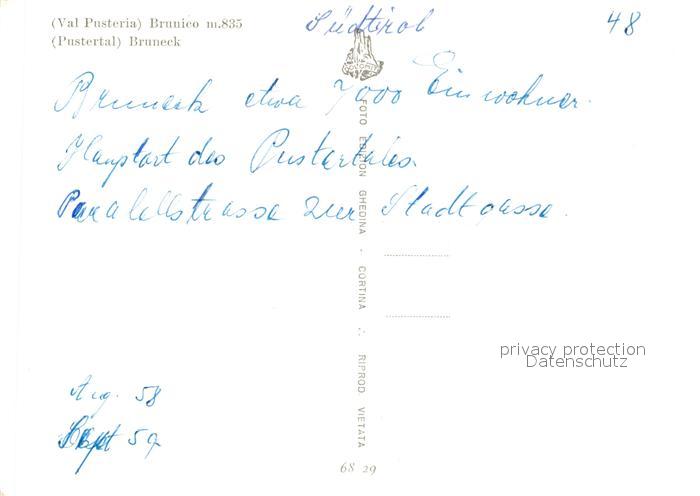 (Val Pusteria) Brunico m.835
(Pustertal) Bruneck
Südtirol
48
Bruneck etwa 7000 Einwohner.
Hauptort des Pustertales.
Parallellstrasse zur Stadtgasse.
FOTO EDIZION GHEDINA - CORTINA ∴ RIPROD VIETATA
privacy protection
Datenschutz
Aug. 58
Sept 59
68 29